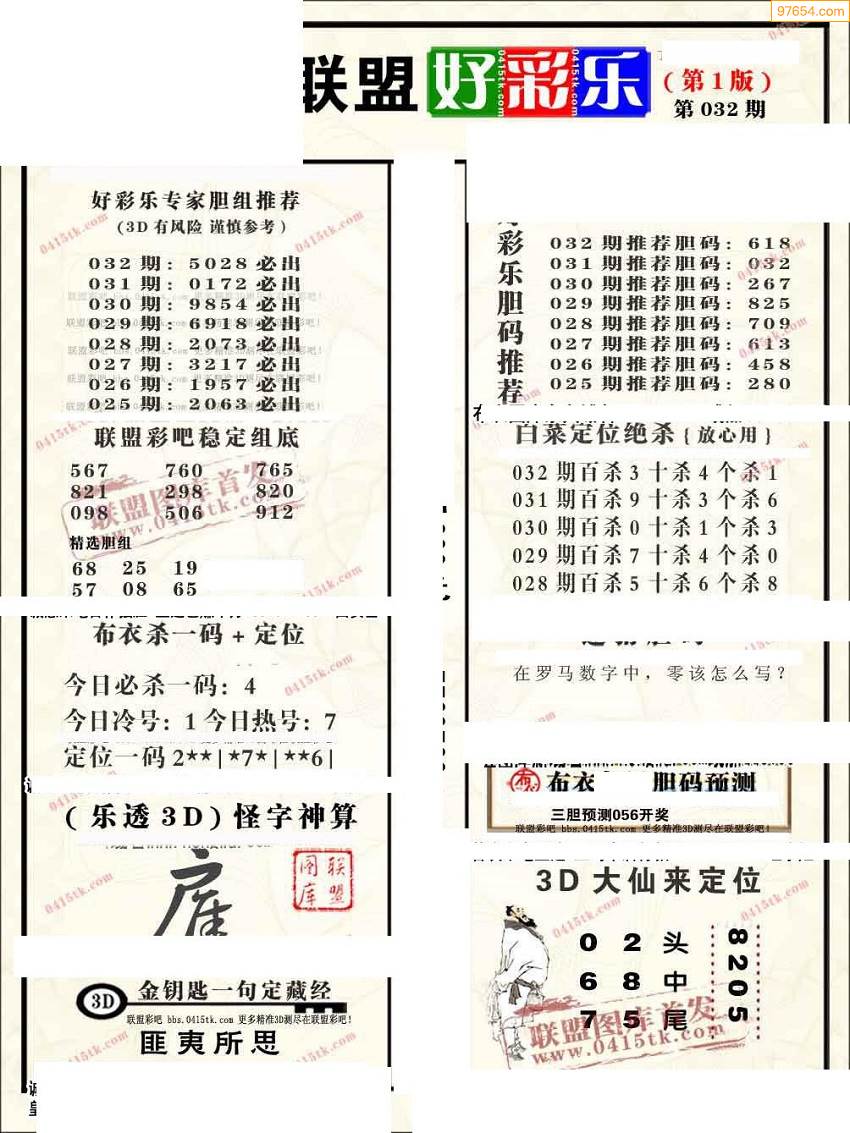 97654.com
联盟 好彩乐
(第1版)
第 032 期
好彩乐专家胆组推荐
(3D 有风险 谨慎参考)
032 期: 5028 必出
031 期: 0172 必出
030 期: 9854 必出
029 期: 6918 必出
028 期: 2073 必出
027 期: 3217 必出
026 期: 1957 必出
025 期: 2063 必出
联盟彩吧稳定组底
567 760 765
821 298 820
098 506 912
精选胆组
68 25 19
57 08 65
布衣杀一码 + 定位
今日必杀一码: 4
今日冷号: 1 今日热号: 7
定位一码 2**|*7*|**6|
(乐透 3D) 怪字神算
联盟图库
3D 金钥匙一句定藏经
联盟彩吧 bbs.0415tk.com 更多精准3D测尽在联盟彩吧!
匪夷所思
彩乐胆码推荐
032 期推荐胆码: 618
031 期推荐胆码: 032
030 期推荐胆码: 267
029 期推荐胆码: 825
028 期推荐胆码: 709
027 期推荐胆码: 613
026 期推荐胆码: 458
025 期推荐胆码: 280
白菜定位绝杀 { 放心用 }
032 期百杀 3 十杀 4 个杀 1
031 期百杀 9 十杀 3 个杀 6
030 期百杀 0 十杀 1 个杀 3
029 期百杀 7 十杀 4 个杀 0
028 期百杀 5 十杀 6 个杀 8
在罗马数字中，零该怎么写？
布衣 胆码预测
三胆预测056开奖
联盟彩吧 bbs.0415tk.com 更多精准3D测尽在联盟彩吧!
3D 大仙来定位
0 2 头
6 8 中
7 5 尾
8205
联盟图库首发
www.0415tk.com